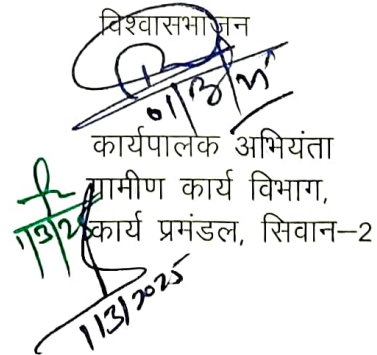 विश्वासभाजन
01/3/25
कार्यपालक अभियंता
ग्रामीण कार्य विभाग,
1/3/25
कार्य प्रमंडल, सिवान-2
1/3/2025